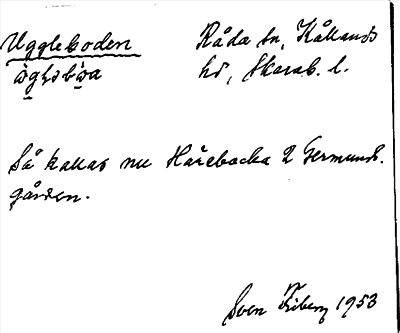 Uggleboden
Råda sn, Kållands
hd, Skarab. l.
Så kallas nu Härebacka 2 Germunds-
gården.
Sven Friberg 1953